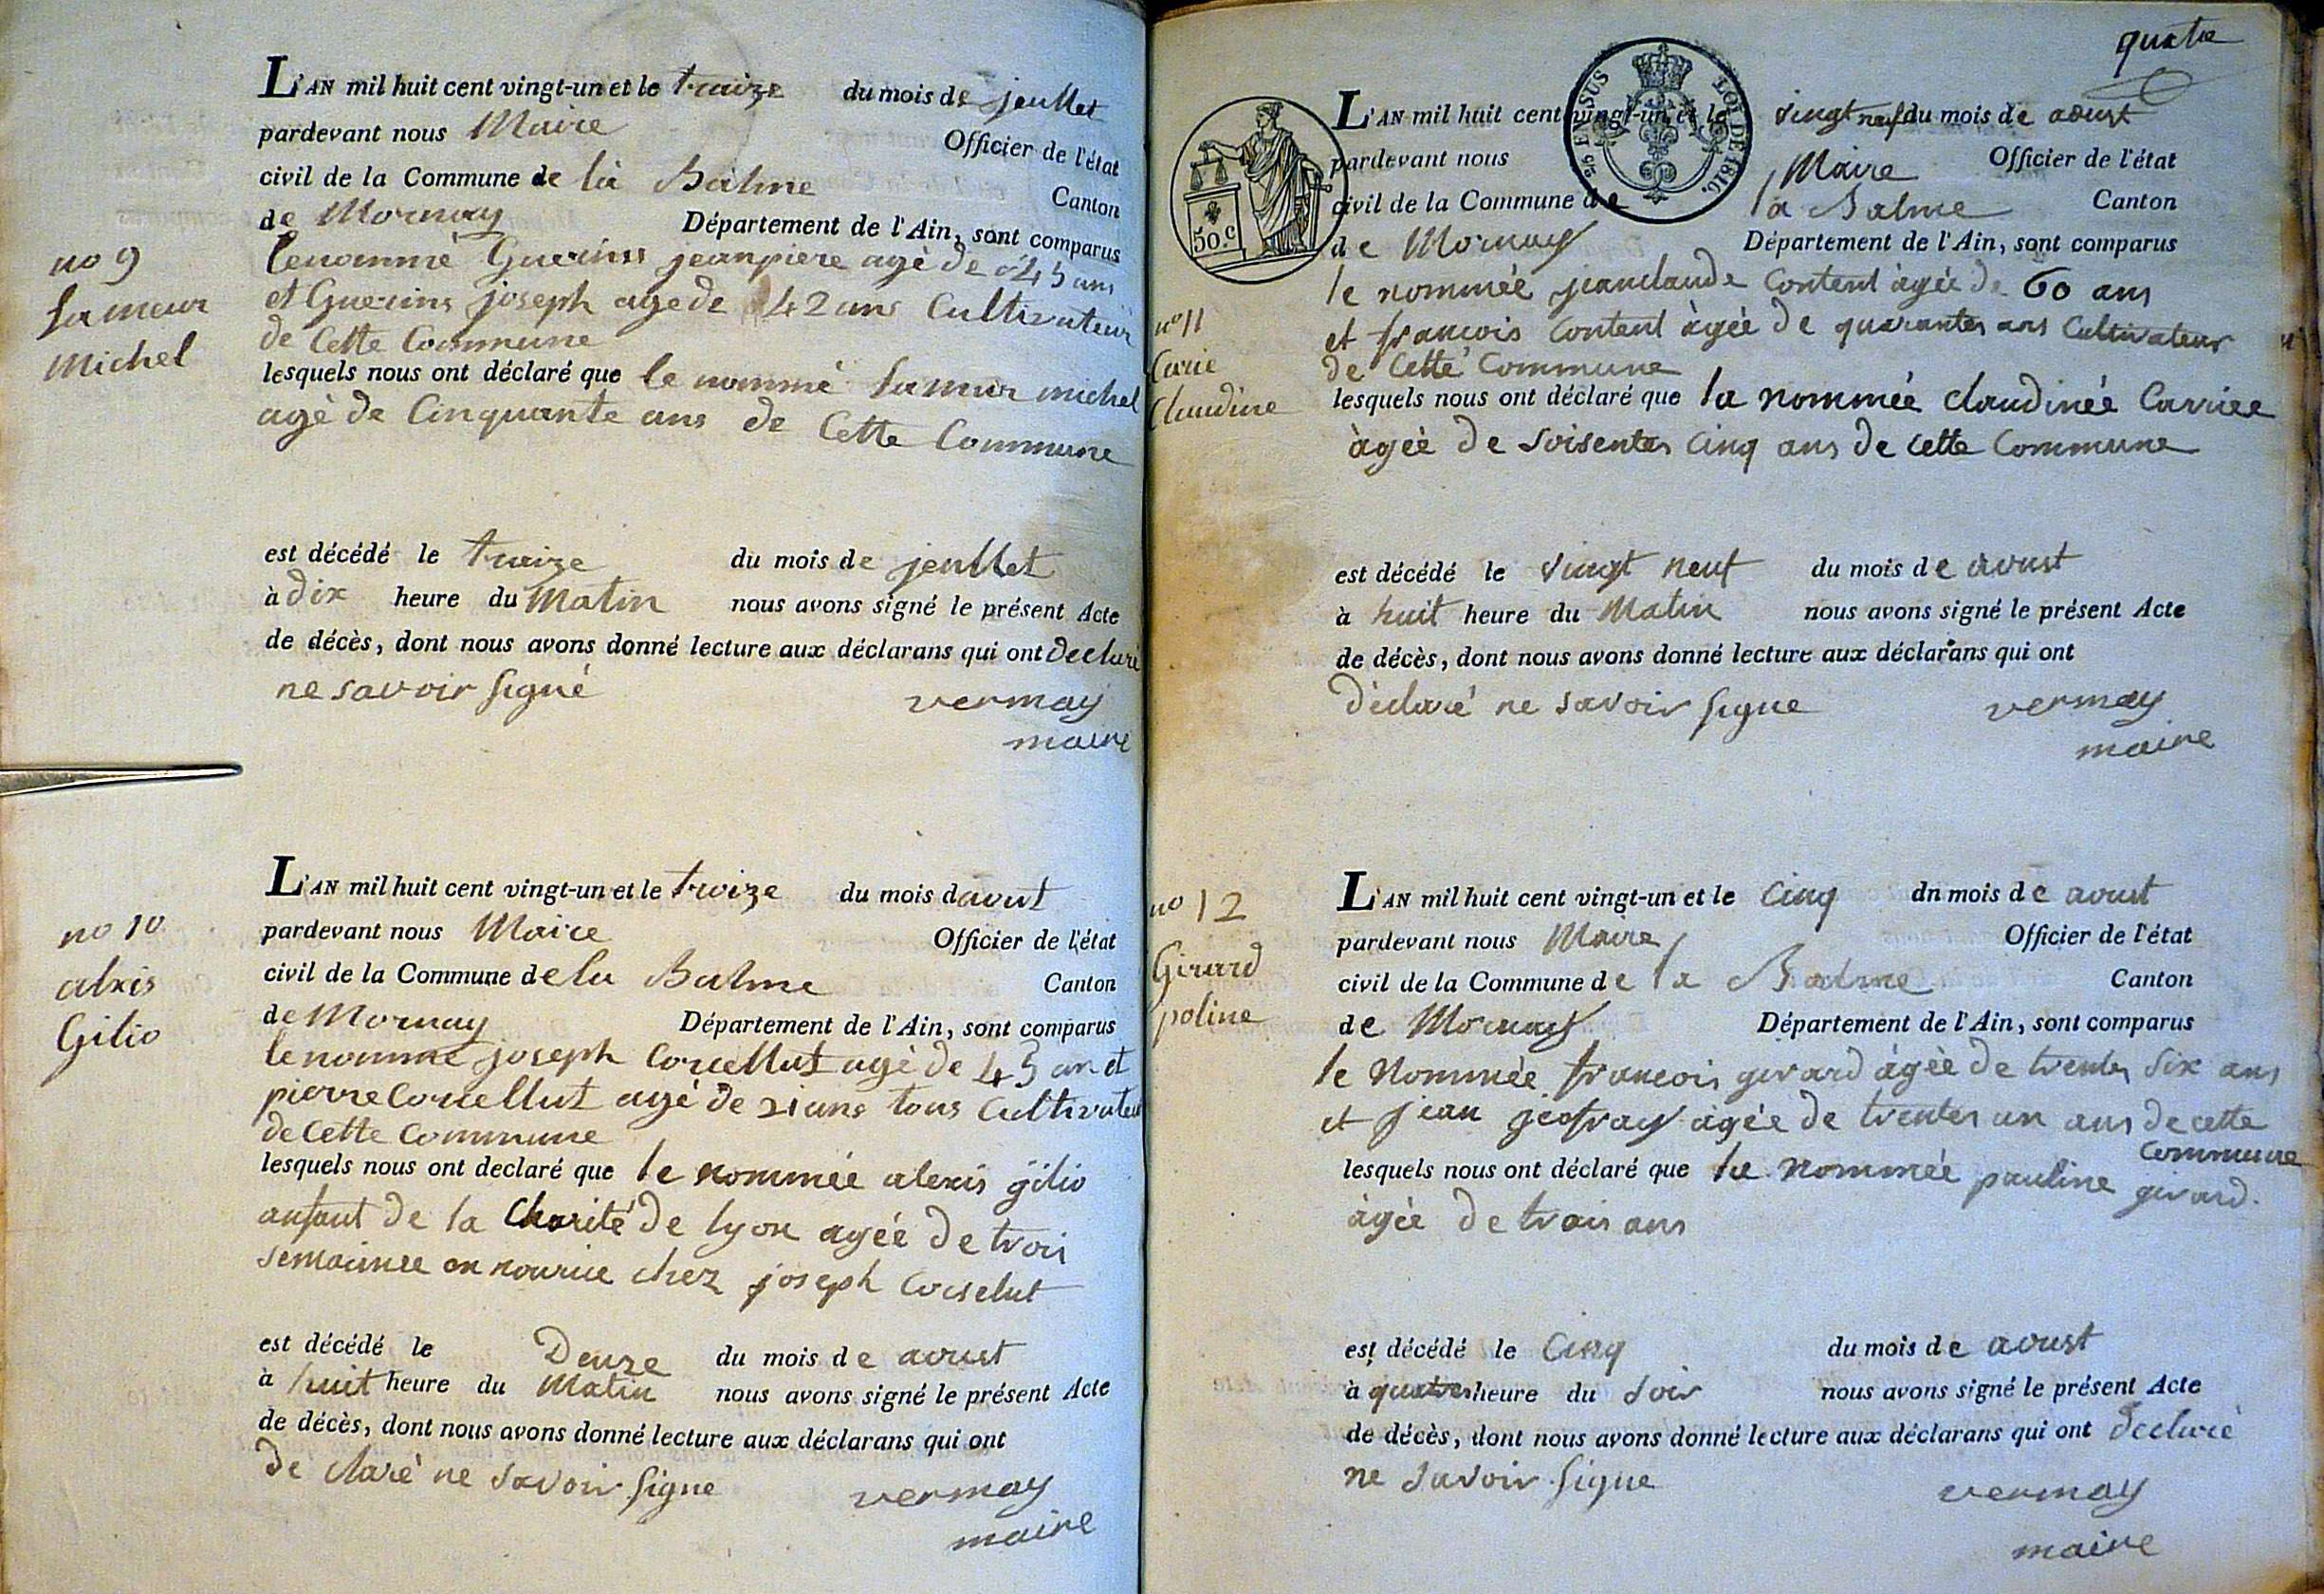 L'AN mil huit cent vingt-un et le traize du mois de jeullet
pardevant nous Maire Officier de l'état
civil de la Commune de la Balme Canton
de Mornay Département de l'Ain, sont comparus
no 9
lenommé Guerins jeanpiere agé de 45 ans
et Guerins joseph age de 42 ans Cultivateur
Michel
de Cette Commune
lesquels nous ont déclaré que le nommé michel
agé de Cinquante ans de Cette Commune
est décédé le traize du mois de jeullet
à dix heure du Matin nous avons signé le présent Acte
de décès, dont nous avons donné lecture aux déclarans qui ont declaré
ne savoir signé
vermay
maire
L'AN mil huit cent vingt-un et le traize du mois d avut
no 10
pardevant nous Maire Officier de l'état
alxis
civil de la Commune de la Balme Canton
Gilio
de Mornay Département de l'Ain, sont comparus
lenomme joseph Corcellut agé de 45 an et
pierre Corcellut agé de 21 ans tous Cultivateu
de Cette Commune
lesquels nous ont declaré que le nommée alexis gilio
anfant de la Charité de lyon agée de troi
semainee en nourice chez joseph Corselut
est décédé le Deuze du mois de avust
à huit heure du Matin nous avons signé le présent Acte
de décès, dont nous avons donné lecture aux déclarans qui ont
De claré ne savoir signe
vermay
maire
quatre
50.c
25 EN SUS
LOI DE 1816.
L'AN mil huit cent vingt-un et le vingt neuf du mois de aoust
pardevant nous Maire Officier de l'état
civil de la Commune de la Balme Canton
de Mornay Département de l'Ain, sont comparus
le nommée jeanclaude Content àgée de 60 ans
no 11
et francois Content àgée de quarantes ans Cultivateur
Carie
de Cette Commune
Claudine
lesquels nous ont déclaré que la nommée claudinée Cariee
àgée de soisentes cinq ans de cette Commune
est décédé le vingt neuf du mois de avust
à huit heure du Matin nous avons signé le présent Acte
de décès, dont nous avons donné lecture aux déclarans qui ont
Déclaré ne savoir signe
vermay
maire
L'AN mil huit cent vingt-un et le Cinq dn mois de avust
no 12
pardevant nous Maire Officier de l'état
Girard
civil de la Commune de la Balme Canton
poline
de Mornay Département de l'Ain, sont comparus
le Nommée francois girard àgée de trentes six ans
et jean jeofray agée de trentes un ans de cette
Commune
lesquels nous ont déclaré que la Nommée pauline girard.
àgée de trois ans
est décédé le Cinq du mois de avust
à quatres heure du Soir nous avons signé le présent Acte
de décès, dont nous avons donné lecture aux déclarans qui ont declaré
ne savoir signe
vermay
maire